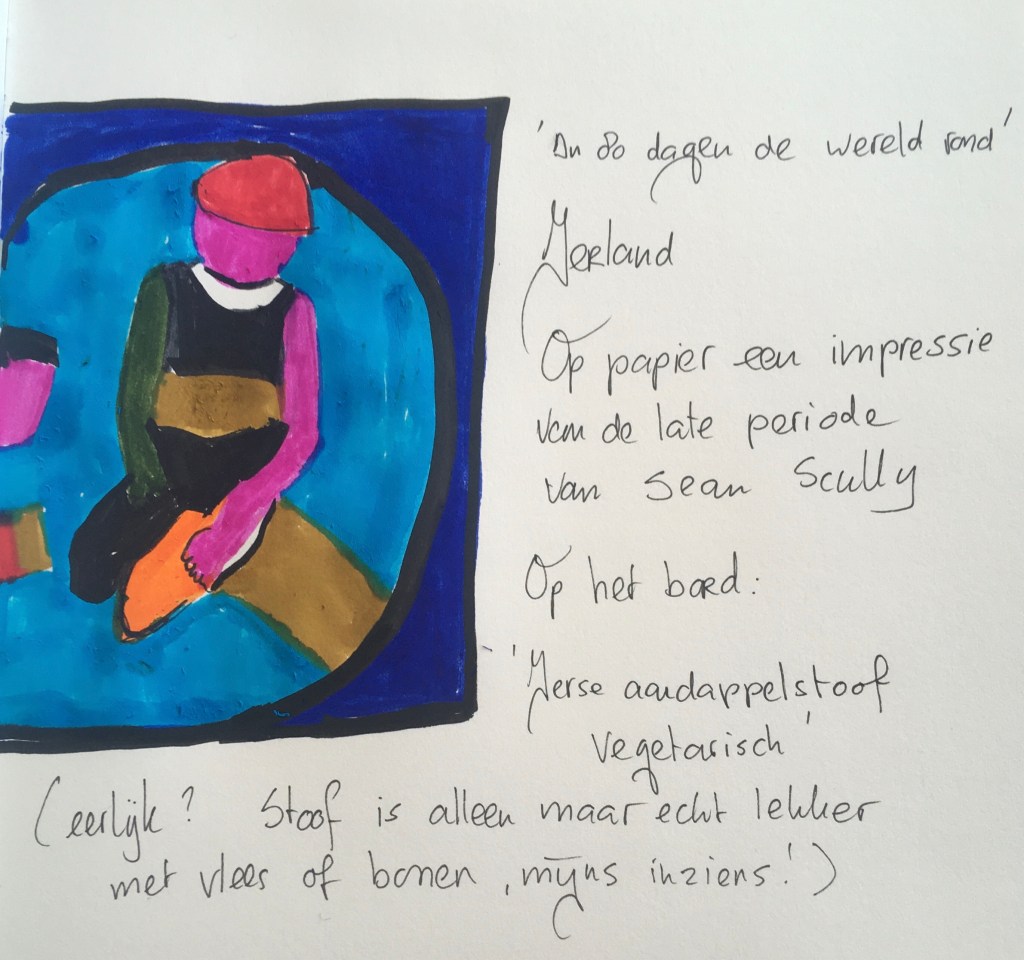 'In 80 dagen de wereld rond'
Ierland
Op papier een impressie
van de late periode
van Sean Scully
Op het bord:
'Ierse aardappelstoof
vegetarisch'
(eerlijk? Stoof is alleen maar echt lekker
met vlees of bonen, mijns inziens!)